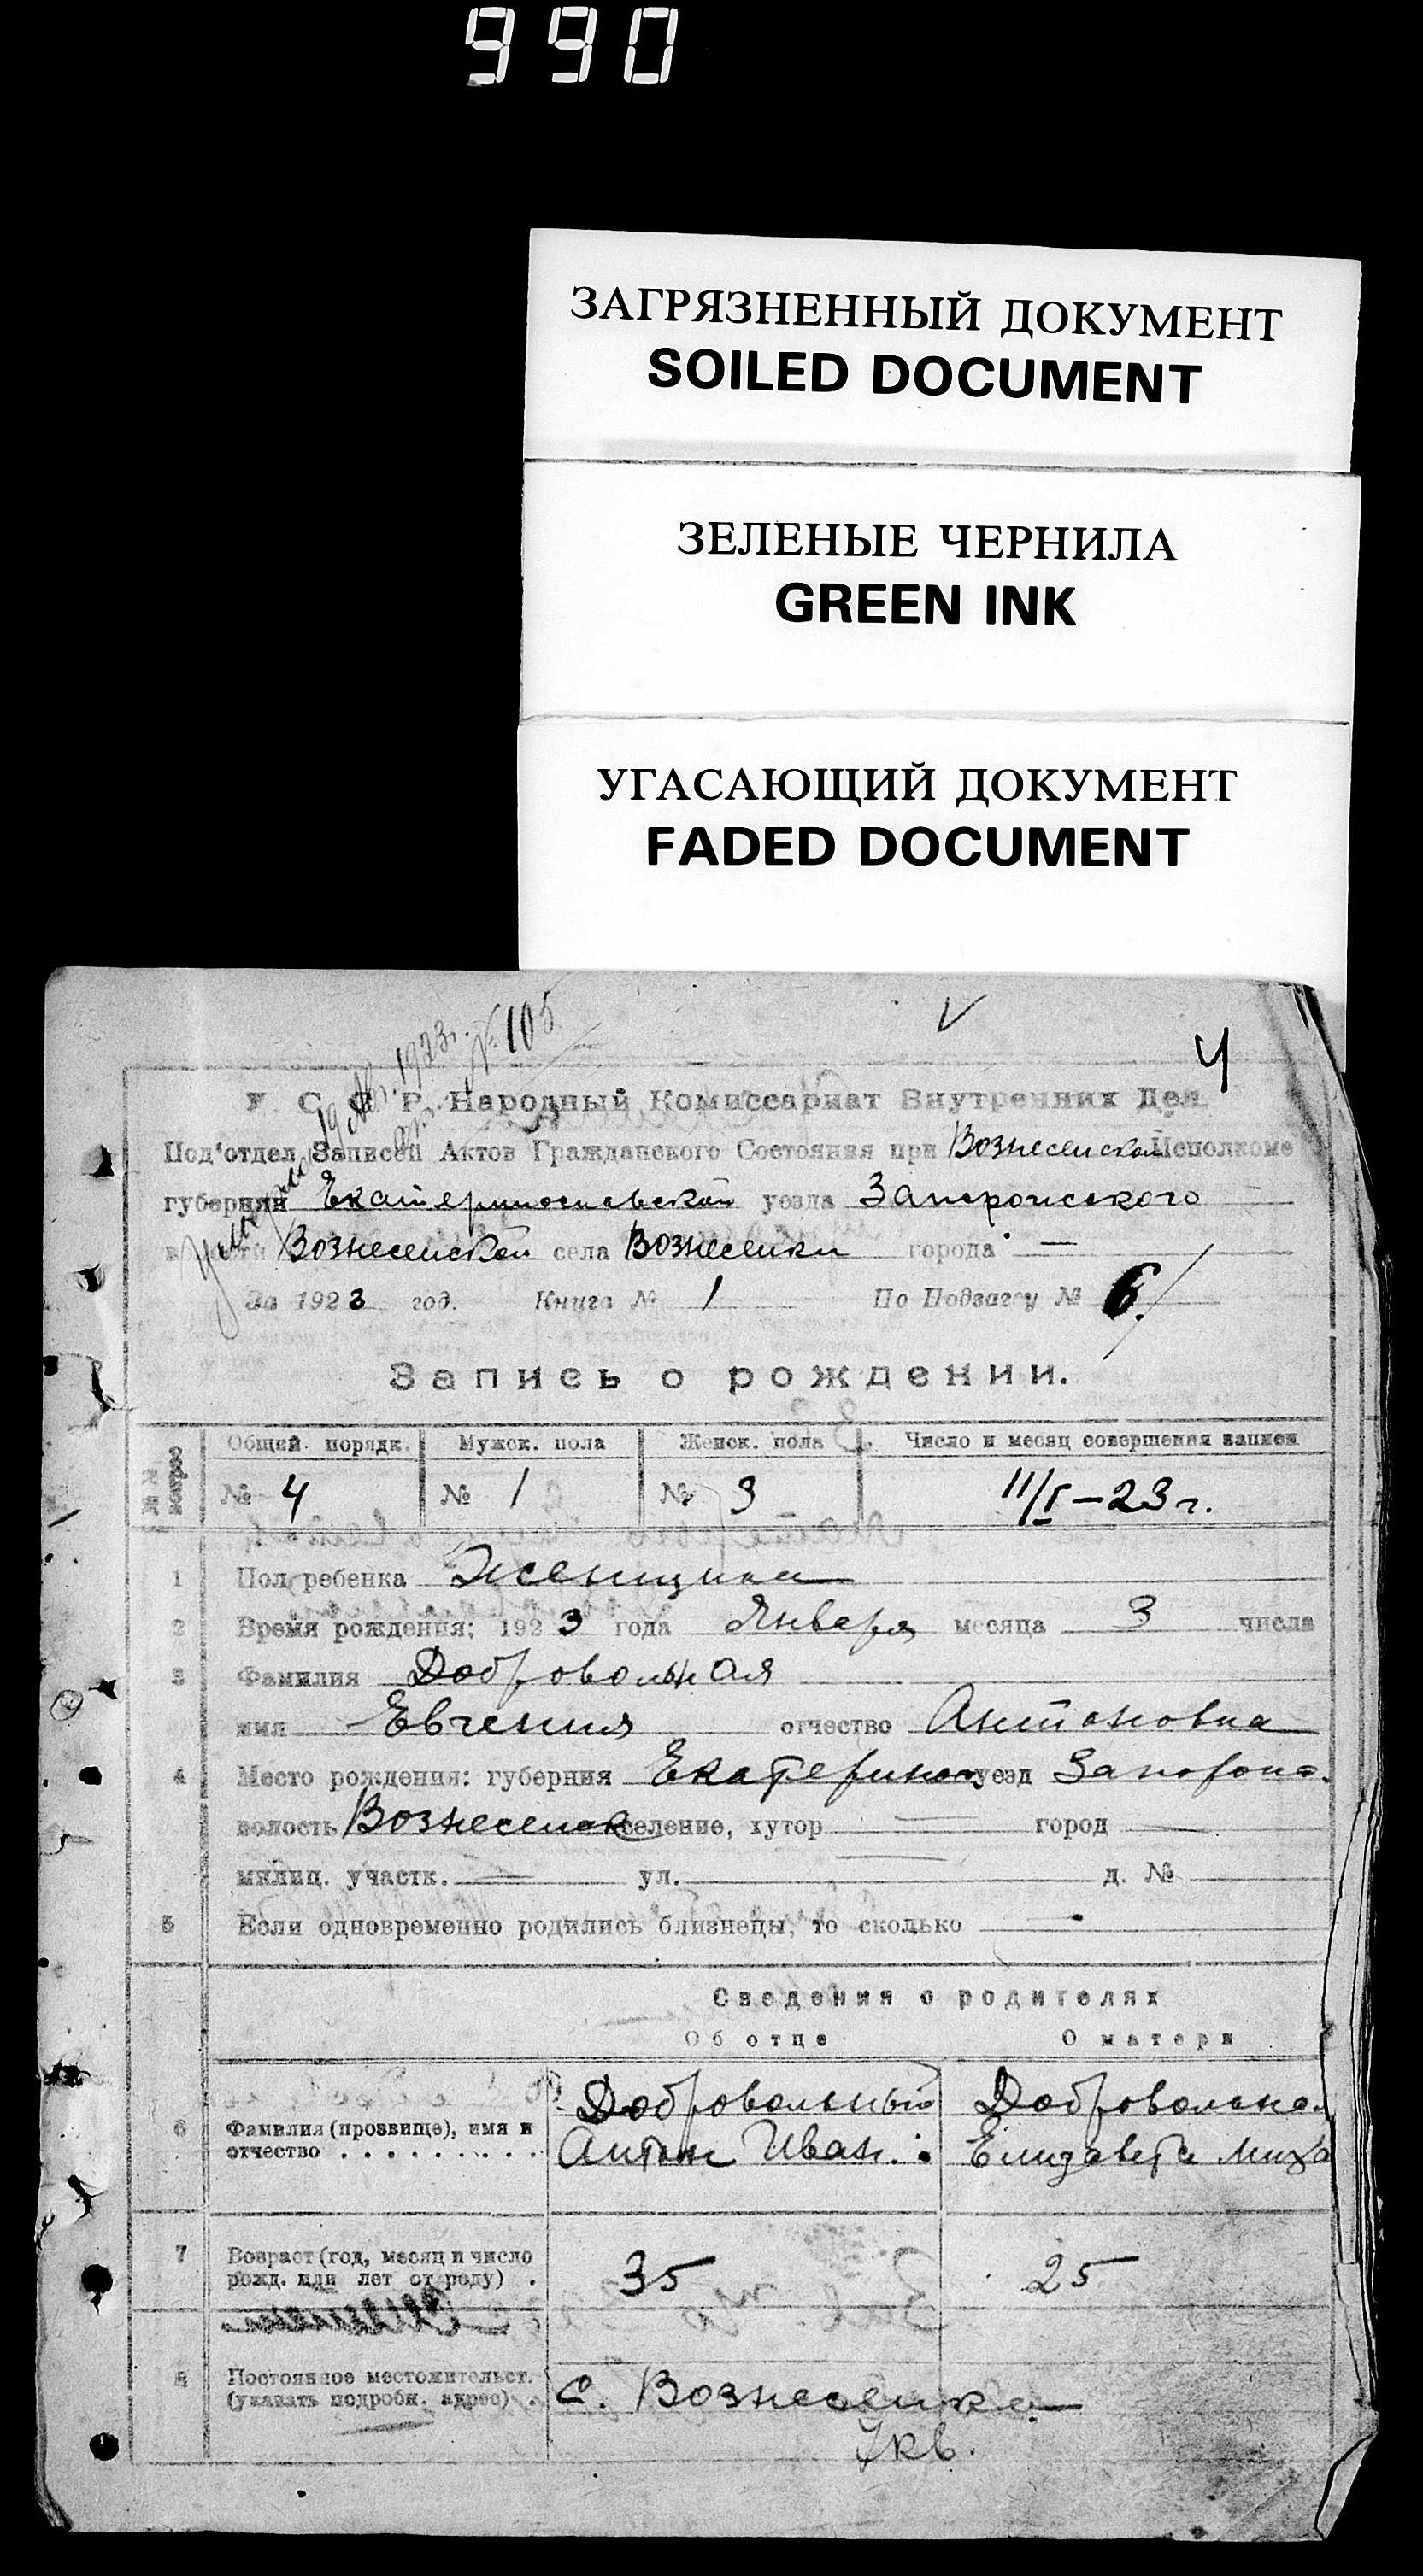 990
ЗАГРЯЗНЕННЫЙ ДОКУМЕНТ
SOILED DOCUMENT
ЗЕЛЕНЫЕ ЧЕРНИЛА
GREEN INK
УГАСАЮЩИЙ ДОКУМЕНТ
FADED DOCUMENT
19 1923г. № 105
4
У. С. С. Р. Народный Комиссариат Внутренних Дел
Под'отдел Записей Актов Гражданского Состояния при Вознесенском Исполкоме
губернии Екатеринославской уезда Запорожского
Вознесенской села Вознесенки города —
За 1923 год. Книга № 1 По Подзагсу № 6
Запись о рождении.
Общий порядк. Мужск. пола Женск. пола Число и месяц совершения записи
№ 4 № 1 № 3 11/I – 23 г.
1 Пол ребенка Женщина
2 Время рождения: 1923 года Января месяца 3 числа
3 Фамилия Добровольная
имя Евгения отчество Антоновна
4 Место рождения: губерния Екатеринос уезд Запорож.
волость Вознесенск селение, хутор — город —
милиц. участк. — ул. — д. №
5 Если одновременно родились близнецы, то сколько
Сведения о родителях
Об отце О матери
6 Фамилия (прозвище), имя и отчество Добровольный Добровольна
Антон Иван. Елизавета Миха
7 Возраст (год, месяц и число рожд. иди лет от роду) 35 25
8 Постоянное местожительст. (указать подробн. адрес) с. Вознесенка
7 кв.